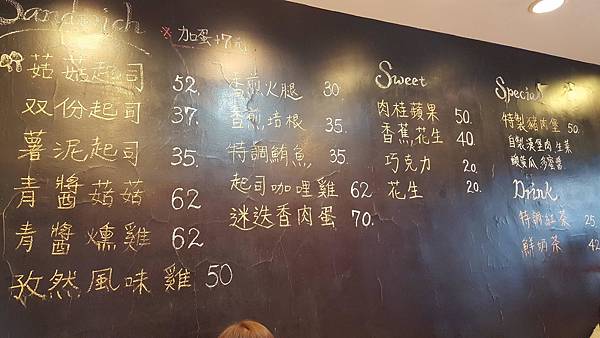 Sandwich
※加蛋+7元
菇菇起司 52.
双份起司 37.
薯泥起司 35.
青醬菇菇 62
青醬燻雞 62
孜然風味雞 50
香煎火腿 30.
香煎培根 35.
特調鮪魚 35.
起司咖哩雞 62
迷迭香肉蛋 70.
Sweet
肉桂蘋果 50.
香蕉花生 40
巧克力 20.
花生 20.
Special
特製豬肉堡 50.
自製漢堡肉、生菜
酸黃瓜、多蜜醬
Drink
特調紅茶 25
鮮奶茶 42